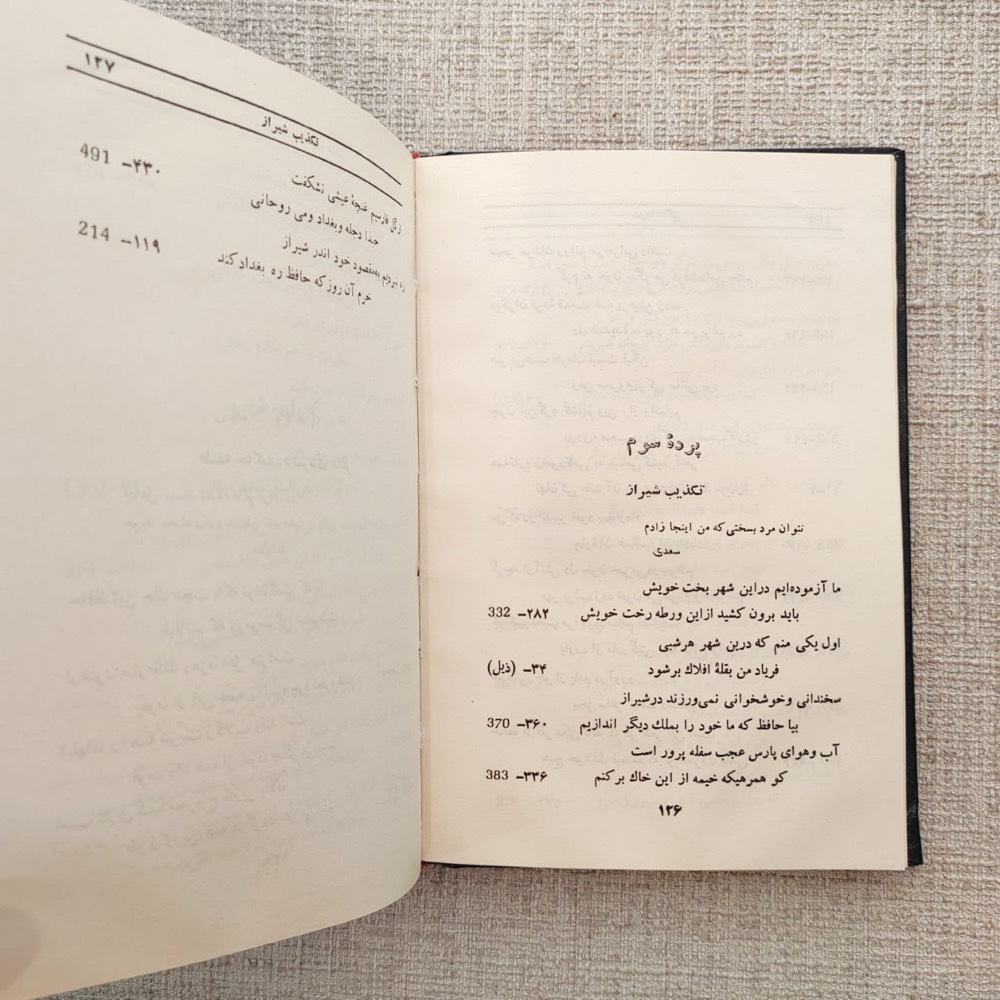 پردهٔ سوم
تکذیب شیراز
نتوان مرد بسختی که من اینجا زادم
سعدی
ما آزموده‌ایم دراین شهر بخت خویش
باید برون کشید ازاین ورطه رخت خویش ۲۸۲– 332
اول یکی منم که درین شهر هرشبی
فریاد من بقلهٔ افلاك برشود ۳۴– (ذیل)
سخندانی و خوشخوانی نمی‌ورزند درشیراز
بیا حافظ که ما خود را بملك دیگر اندازیم ۳۶۰– 370
آب وهوای پارس عجب سفله پرور است
کو همرهیکه خیمه از این خاك برکنم ۳۳۶– 383
۱۲۶
۱۲۷
تکذیب شیراز
ازگل فارسیم غنچهٔ عیشی نشکفت
حبذا دجله وبغداد ومی روحانی ۴۳۰– 491
ره نبردیم بمقصود خود اندر شیراز
خرم آن روز که حافظ ره بغداد کند ۱۱۹– 214